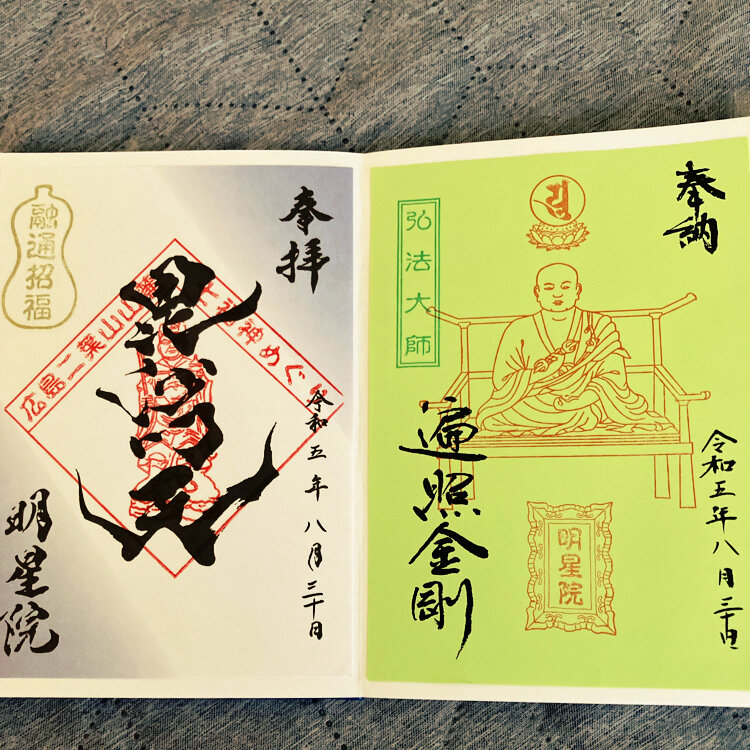 奉納
令和五年八月三十日
弘法大師
明星院
遍照金剛
奉拝
令和五年八月三十日
毘沙門天
広島二葉山山麓七福神めぐり
融通招福
明星院